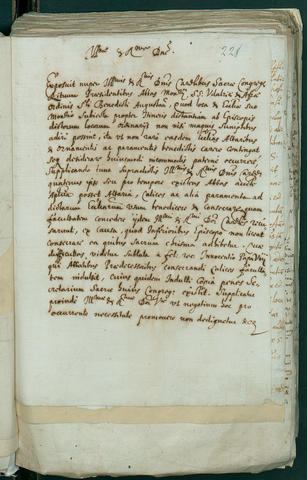 Illmi & Rmi Dni.
221
Exposuit nuper Illmis & Rmis Dnis Cardlibus Sacræ Congreg.
Rituum Præsidentibus Abbas Monrij S.S. Udalrici & Afræ
Ordinis Sti Benedicti Augustæ, quod loca & Ecclæ suo
Monrio Subiecta propter Itineris distantiam ab Episcopis
dictorum locorum ordinarijs non nisi magnis sumptibus
adiri possint, ita ut non raro eædem Altaribus
& ornamentis ac paramentis benedictis carere contingat
seq. desiderare huiusmodi incommodis paterne occurrere,
Supplicando suma supradictis Illmis & Rmis Dnis
quatenus ipsi seu pro tempore existenti Abbati
posset Altaria, Calices, ac alia paramenta ad
dictarum Ecclesiarum usum benedicere & Consecrare,
facultatem concedere ijdem Illmi & Rmi Dni
sarunt, ex causa, quod Inferioribus Episcopo non liceat
Consecrare ea quibus Sacrum chrisma adhibetur. Quæ
difficultas videtur Sublata a fel. rec. Innocentio Papa
qui Abbatibus Prædecessoribus consecrandi calices facultatem
indulsit, cuius quidem Indulti Copia penes Se-
cretarium Sacræ huius Congreg. existit. Supplicatur
proinde Illmis & Rmis ut negotium hoc pro
occurrenti necessitate promovere non dedignetur &c.